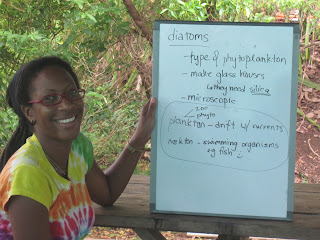 diatoms
- type of phytoplankton
- make glass houses
↳ they need silica
- microscopic
zoo
phyto
plankton - drift w/ currents
nekton - swimming organisms
eg fish